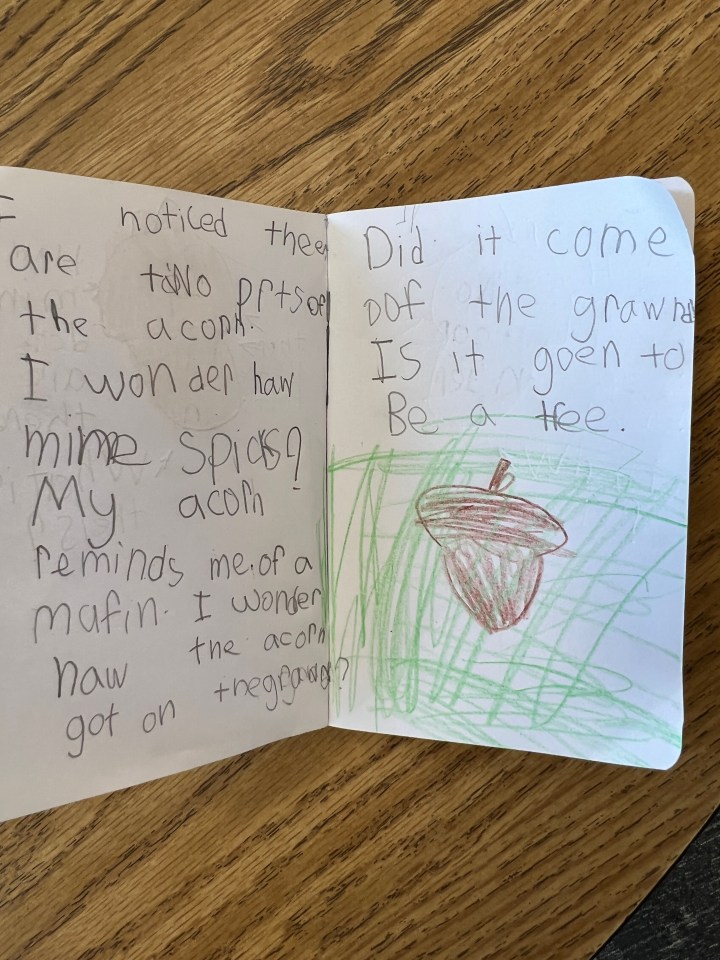 I noticed theer
are two prts of
the acorn.
I wonder haw
mime spicks?
My acorn
reminds me. of a
mafin. I wonder
haw the acorn
got on the grawnd?
Did it come
oof the grawnd
Is it goen to
Be a tree.